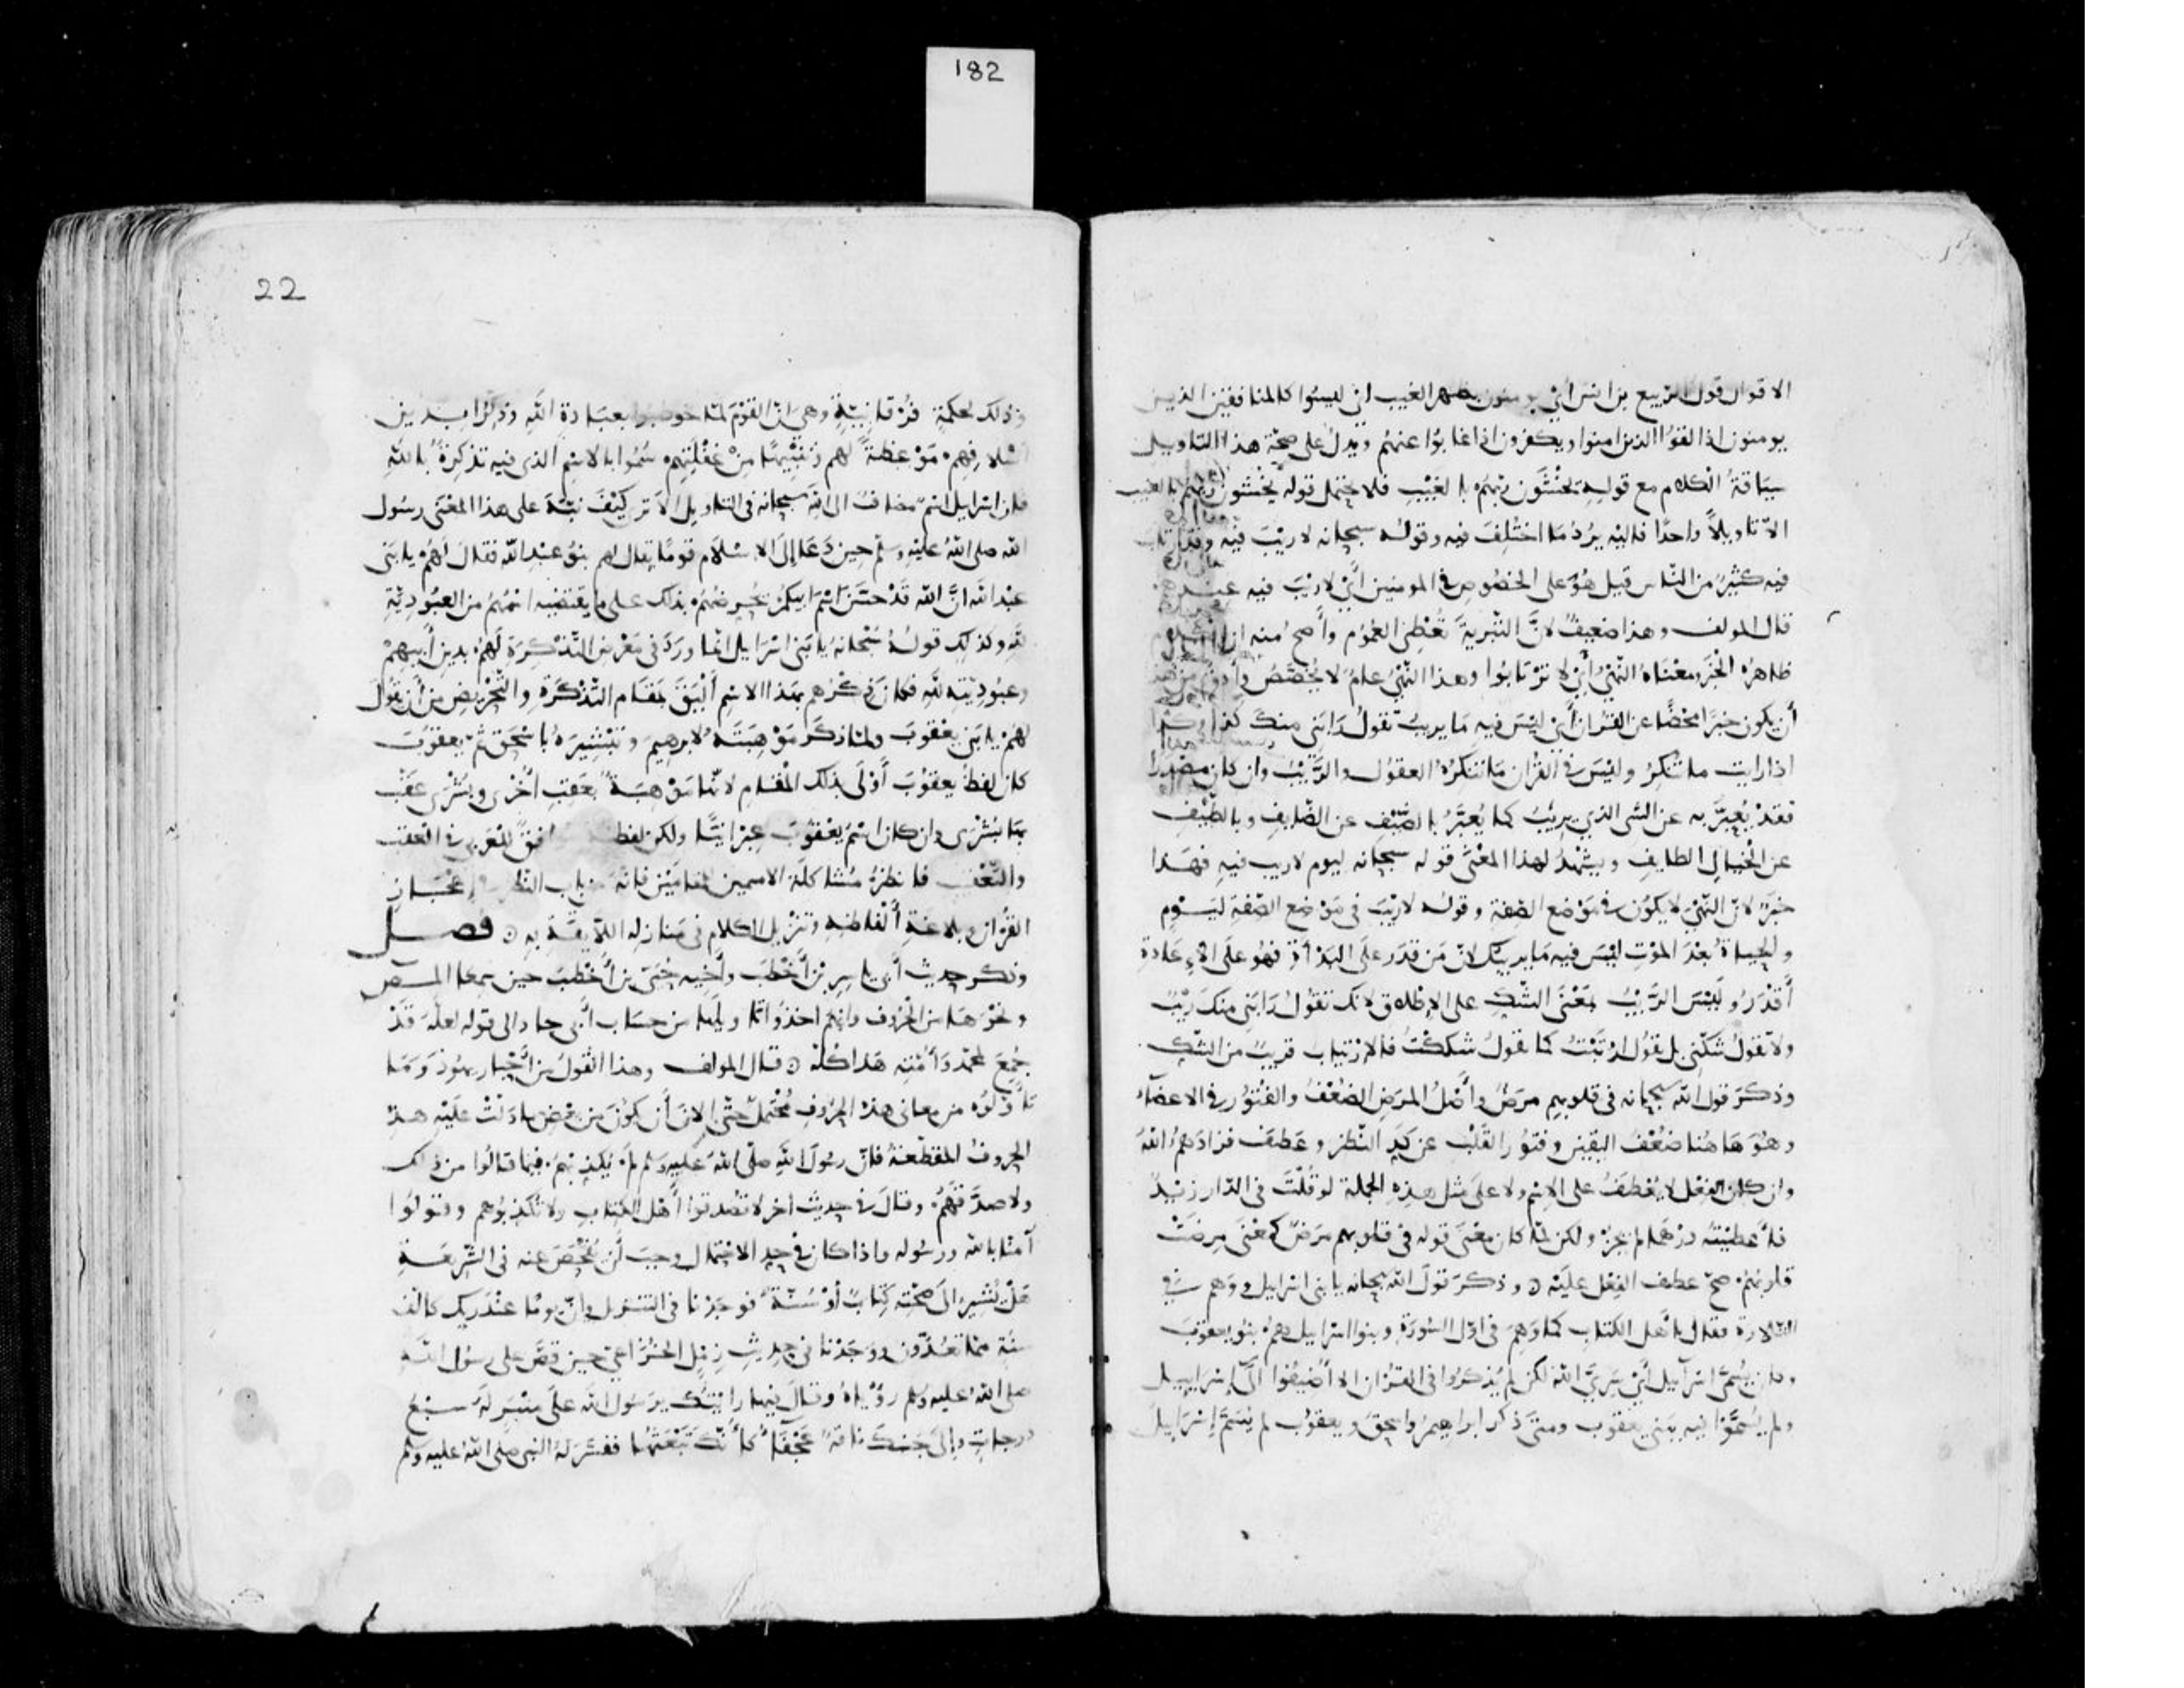 182
الاقوال قول الربيع بن انس أي يومنون بظهر الغيب اي ليسوا كالمنافقين الذين
يومنون اذا لقوا الذين امنوا ويكفرون اذا غابوا عنهم ويدل على صحة هذا التاويل
سياقة الكلام مع قوله يخشون ربهم بالغيب فلا يحتمل قوله يخشون ربهم بالغيب
الا تاويلاً واحدًا فاليه يرد ما اختلف فيه وقوله سبحانه لا ريب فيه وقد ارتاب
فيه كثير من الناس قيل هو على الخصوص في المومنين أي لا ريب فيه عندهم
قال المولف وهذا ضعيف لان التبرية تعطي العموم وأصح منه ان الكلام
ظاهره الخبر ومعناه النهي أي لا ترتابوا وهذا النهي عام لا يخصص وأدق من هذا
أن يكون خبرًا محضًا عن القران أي ليس فيه ما يريب تقول رابني منك كذا وكذا
اذا رايت ما تنكر وليس في القران ما تنكره العقول والريب وان كان مصدرا
فقد يعبر به عن الشي الذي يريب كما يعبر بالضيف عن الضايف وبالطيف
عن الخيال الطايف ويشهد لهذا المعنى قوله سبحانه ليوم لا ريب فيه فهذا
خبر لان النهي لا يكون في موضع الصفة وقوله لا ريب في موضع الصفة ليوم
والحياة بعد الموت ليس فيه ما يريبك لان من قدر على البدأة فهو على الاعادة
أقدر وليس الريب بمعنى الشك على الاطلاق لانك تقول رابني منك ريب
ولا تقول شكني بل تقول ارتبت كما تقول شككت فالارتياب قريب من الشك
وذكر قول الله سبحانه في قلوبهم مرض وأصل المرض الضعف والفتور في الاعضاء
وهو هاهنا ضعف اليقين وفتور القلب عن كد النظر وعطف فزادهم الله
وان كان الفعل لا يعطف على الاسم ولا على مثل هذه الجملة لو قلت في الدار زيد
فأعطيته درهما لم يجز ولكن لما كان معنى قوله في قلوبهم مرض كمعنى مرضت
قلوبهم صح عطف الفعل عليه ٥ وذكر قول الله سبحانه يا بني اسرايل ووهم في
التلاوة فقال يا أهل الكتاب كما وهم في اول السورة وبنوا اسرايل هم بنو يعقوب
وكان يسمى اسرآيل أي سري الله لكن لم يذكروا في القران الا أضيفوا الى إسراييل
ولم يسموا فيه بني يعقوب ومتى ذكر ابراهيم واسحق ويعقوب لم يسم إسرايل
22
وذلك لحكمة فرقانية وهي ان القوم لما خوطبوا بعبادة الله وذكروا بدين
أسلافهم موعظة لهم وتنبيهًا من غفلتهم سموا بالاسم الذي فيه تذكرة بالله
فان اسرايل اسم مضاف الى الله سبحانه في التاويل الا تر كيف نبه على هذا المعنى رسول
الله صلى الله عليه وسلم حين دعا إلى الاسلام قومًا يقال لهم بنو عبد الله فقال لهم يا بني
عبد الله ان الله قد حسن اسم ابيكم يحرضهم بذلك على ما يقتضيه اسمهم من العبودية
لله وكذلك قوله سبحانه يا بني اسرايل انما ورد في معرض التذكرة لهم بدين أبيهم
وعبوديته لله فكان ذكرهم بهذا الاسم أليق بمقام التذكرة والتحريض من أن يقول
لهم يا بني يعقوب ولما ذكر موهبته لابرهيم وتبشيره باسحق ثم يعقوب
كان لفظ يعقوب أولى بذلك المقام لانها موهبة بعقب أخرى وبشرى عقب
بها بشرى وان كان اسم يعقوب عبرانيًا ولكن لفظه موافق للعربي في العقب
والتعقيب فانظر مشاكلة الاسمين للمقامين فانه من باب النظر في إعجاز
القران وبلاغة ألفاظه وتنزيل الكلام في منازله اللايقة به ٥ فصل
وذكر حديث أبي ياسر بن أخطب وأخيه حيي بن أخطب حين سمعا المص
ونحوها من الحروف وانهم اخذوا تاويلها من حساب أبي جاد الى قوله لعله قد
جمع لمحمد وأمته هذا كله ٥ قال المولف وهذا القول من أحبار يهود وما
تأولوه من معاني هذه الحروف محتمل حتى الان أن يكون من بعض ما دلت عليه هذه
الحروف المقطعة فان رسول الله صلى الله عليه وسلم لم يكذبهم فيما قالوا من ذلك
ولا صدقهم وقال في حديث اخر لا تصدقوا أهل الكتاب ولا تكذبوهم وقولوا
آمنا بالله ورسوله واذا كان في حد الاحتمال وجب أن يفحص عنه في الشريعة
هل يشير الى صحته كتاب أو سنة فوجدنا في التنزيل وان يوما عند ربك كالف
سنة مما تعدون ووجدنا في حديث زمل الخزاعي حين قص على رسول الله
صلى الله عليه وسلم رؤياه وقال فيها رايتك يرسول الله على منبر له سبع
درجات وإلى جنبك ناقة عجفاء كأنك تبعثها ففسر له النبي صلى الله عليه وسلم